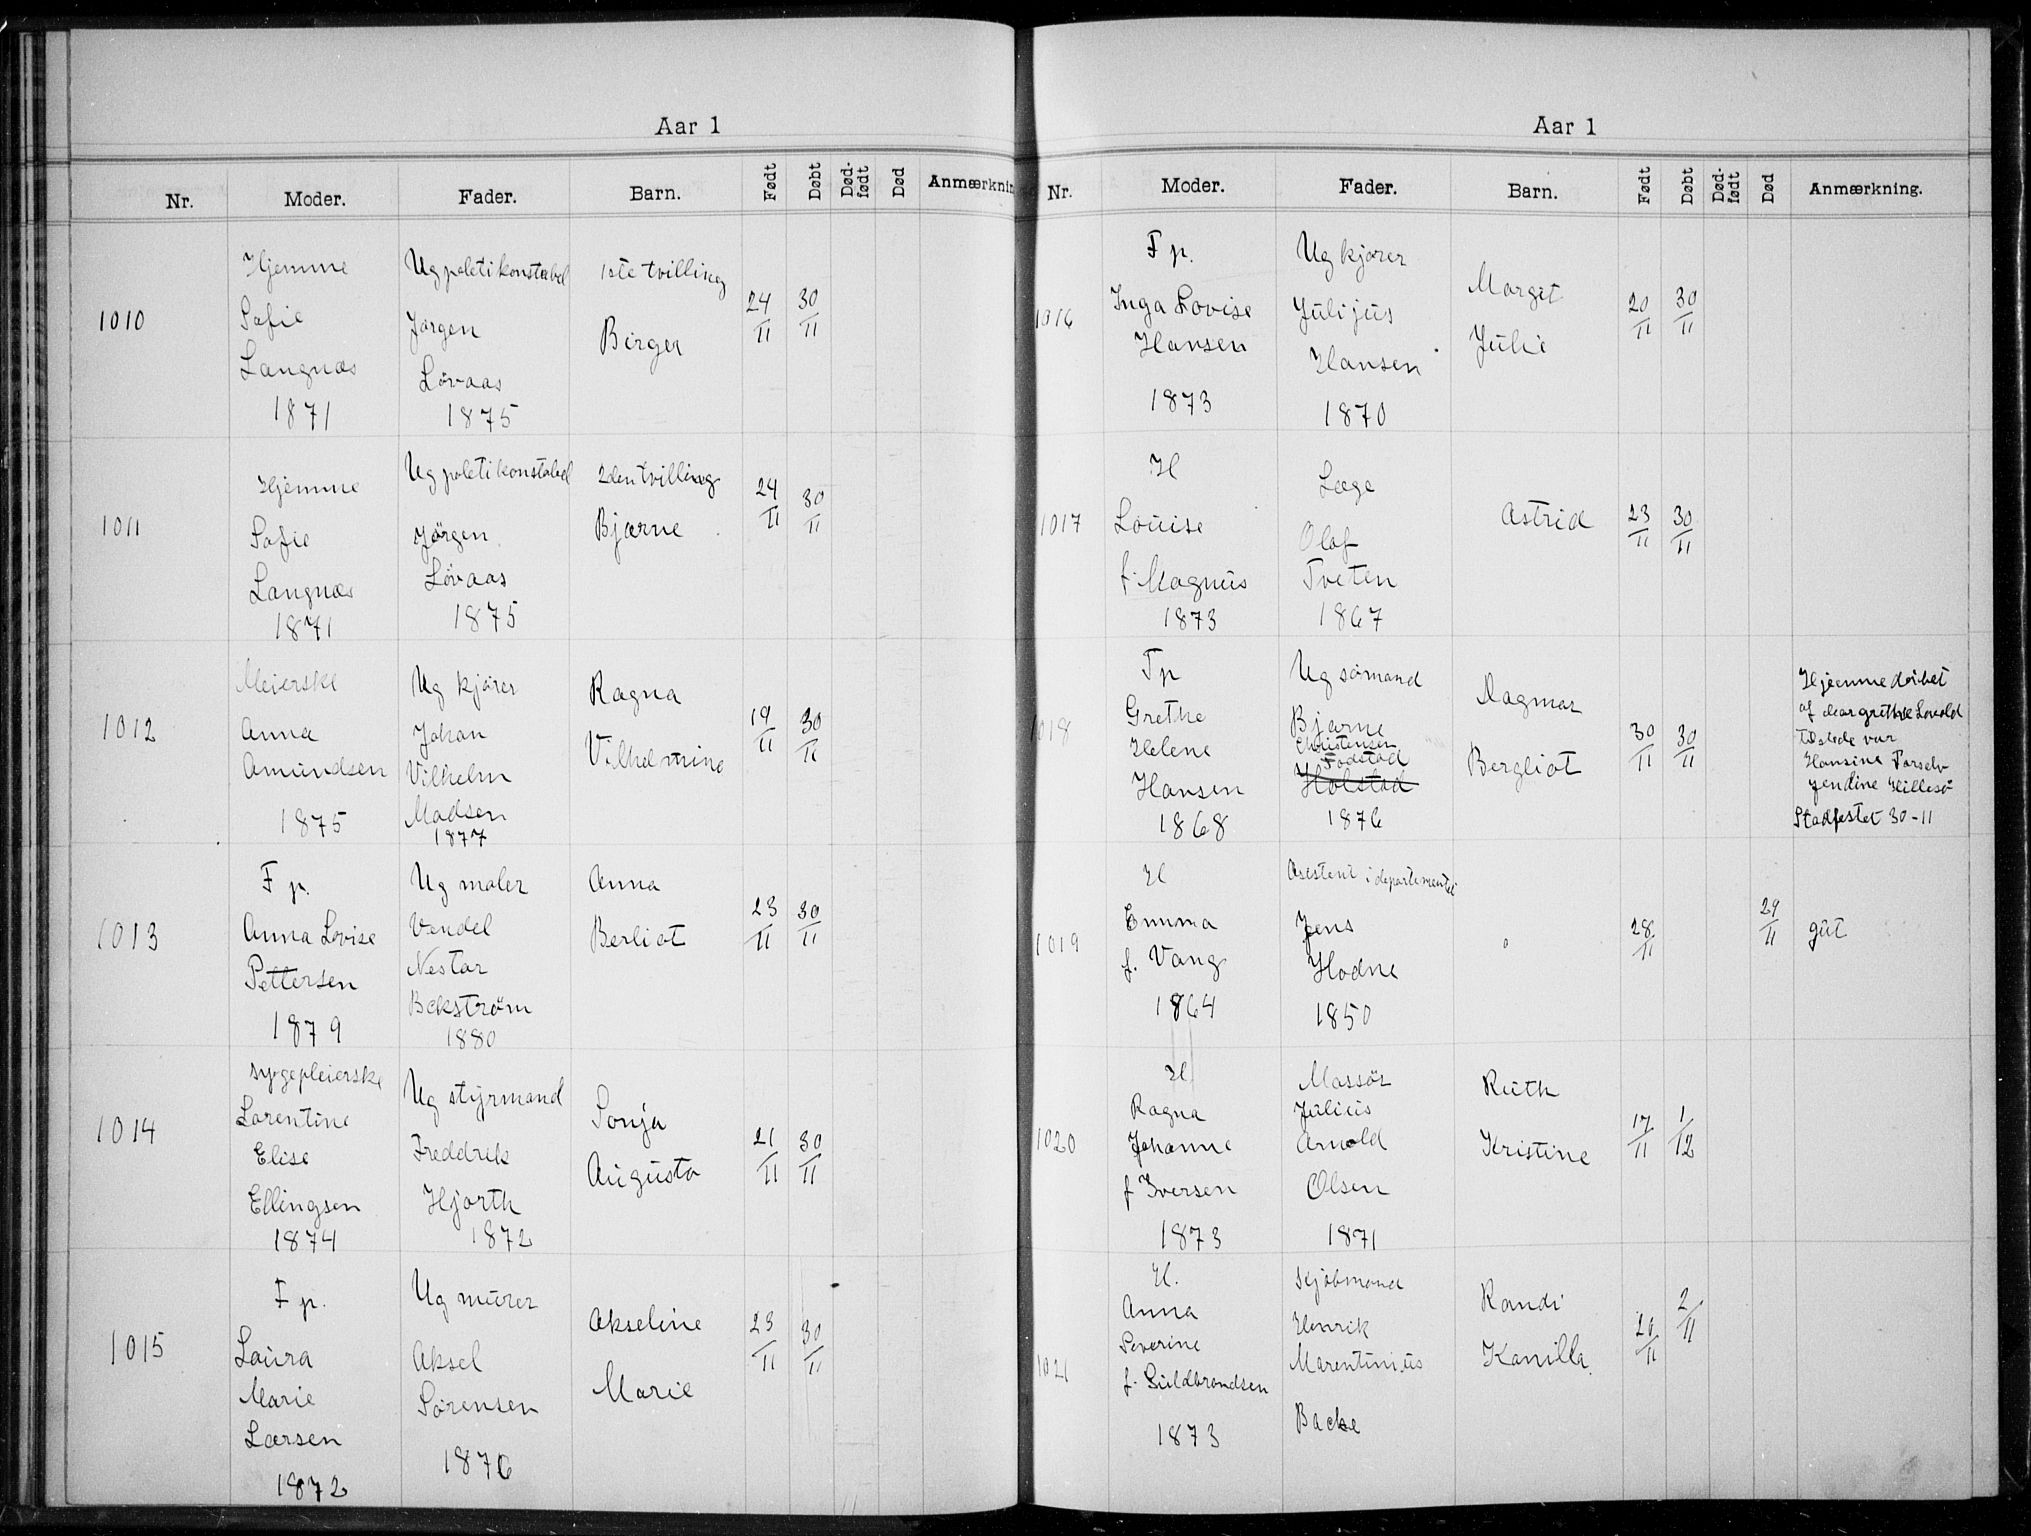 Aar 1
Nr. Moder. Fader. Barn. Født Døbt Død-født Død Anmærkning
1010
Hjemme
Sofie
Langnæs
1871
Ug poletikonstabel
Jørgen
Løvaas
1875
1ste tvilling
Birger
24/11 30/11
1011
Hjemme
Sofie
Langnæs
1871
Ug poletikonstabel
Jørgen
Løvaas
1875
2den tvilling
Bjarne
24/11 30/11
1012
Meierske
Anna
Amundsen
1875
Ug kjører
Johan
Vilhelm
Madsen
1877
Ragna
Vilhelmine
19/11 30/11
1013
F p.
Anna Lovise
Pettersen
1879
Ug maler
Vendel
Nestor
Bekstrøm
1880
Anna
Berliot
23/11 30/11
1014
sygepleierske
Lorentine
Elise
Ellingsen
1874
Ug styrmand
Freddrik
Hjorth
1872
Sonja
Augusta
21/11 30/11
1015
F p.
Laura
Marie
Larsen
1872
Ug murer
Aksel
Sørensen
1876
Akseline
Marie
23/11 30/11
Aar 1
Nr. Moder. Fader. Barn. Født Døbt Død-født Død Anmærkning.
1016
F p.
Inga Lovise
Hansen
1873
Ug kjører
Julijus
Hansen
1870
Margit
Julie
20/11 30/11
1017
H
Louise
f. Magnus
1873
Læge
Olaf
Tveten
1867
Astrid
23/11 30/11
1018
Fp
Grethe
Helene
Hansen
1868
Ug sømand
Bjarne
Christensen
Fodstad
Holstad
1876
Dagmar
Bergliot
30/11 30/11
Hjemmedøbet
af Margrethe Lovold
tilstede var
Hansine
Jendine Hillesø
Stadfestet 30-11
1019
H
Emma
f. Vang
1864
Assistent i departementet
Jens
Hodne
1850
28/11 29/11
gut
1020
H
Ragna
Johanne
f Iversen
1873
Massør
Julius
Arnold
Olsen
1871
Ruth
Kristine
17/11 1/12
1021
H.
Anna
Severine
f. Guldbrandsen
1873
Kjøbmand
Henrik
Marentinius
Backe
Randi
Kanilla
20/11 2/11